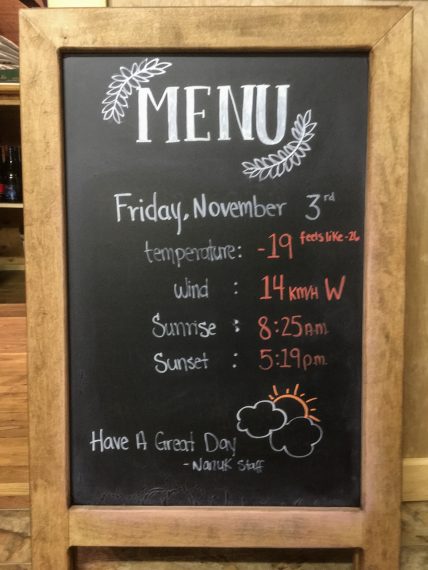 MENU
Friday, November 3rd
temperature: -19 feels like -26
Wind : 14 KM/H W
Sunrise : 8:25 A.m
Sunset : 5:19 p.m
Have A Great Day
- Nanuk Staff